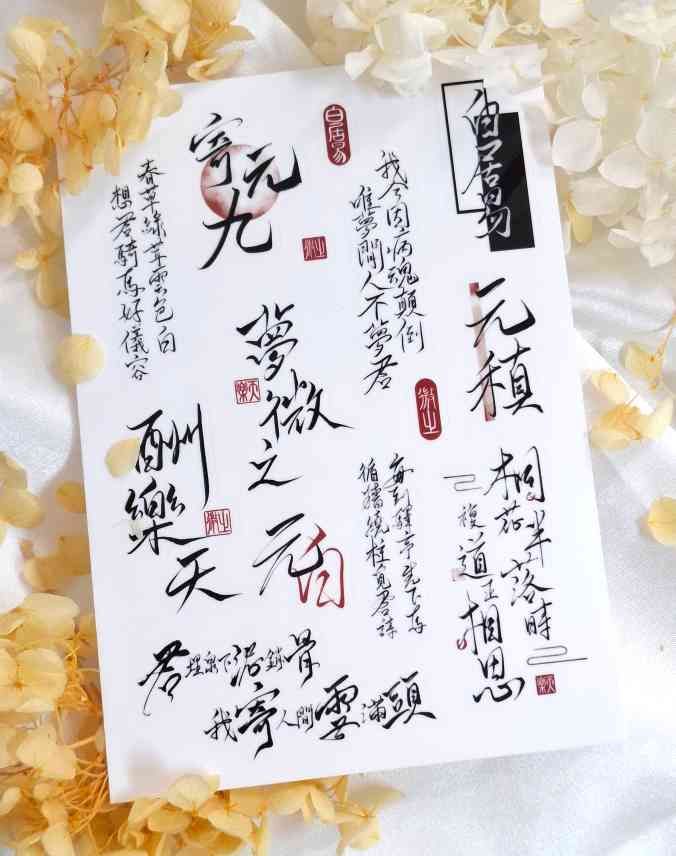 白居易
元稹
桐花半落時
複道正相思
樂天
白居易
我今因病魂顛倒
唯夢閒人不夢君
微之
每到驛亭先下馬
循牆繞柱覓君詩
寄元九
微之
夢微之
樂天
元白
春草綠茸雲色白
想君騎馬好儀容
酬樂天
微之
君埋泉下泥銷骨
我寄人間雪滿頭